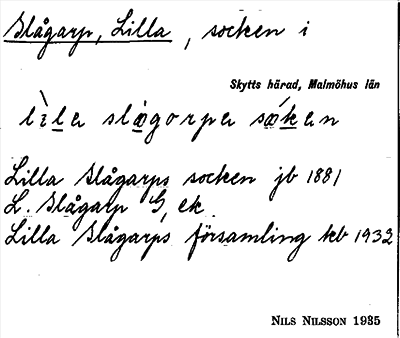 Slågarp, Lilla, socken i
Skytts härad, Malmöhus län
lìla slågorpa sókan
Lilla Slågarps socken jb 1881
L. Slågarp G, ek
Lilla Slågarps församling kb 1932
NILS NILSSON 1935